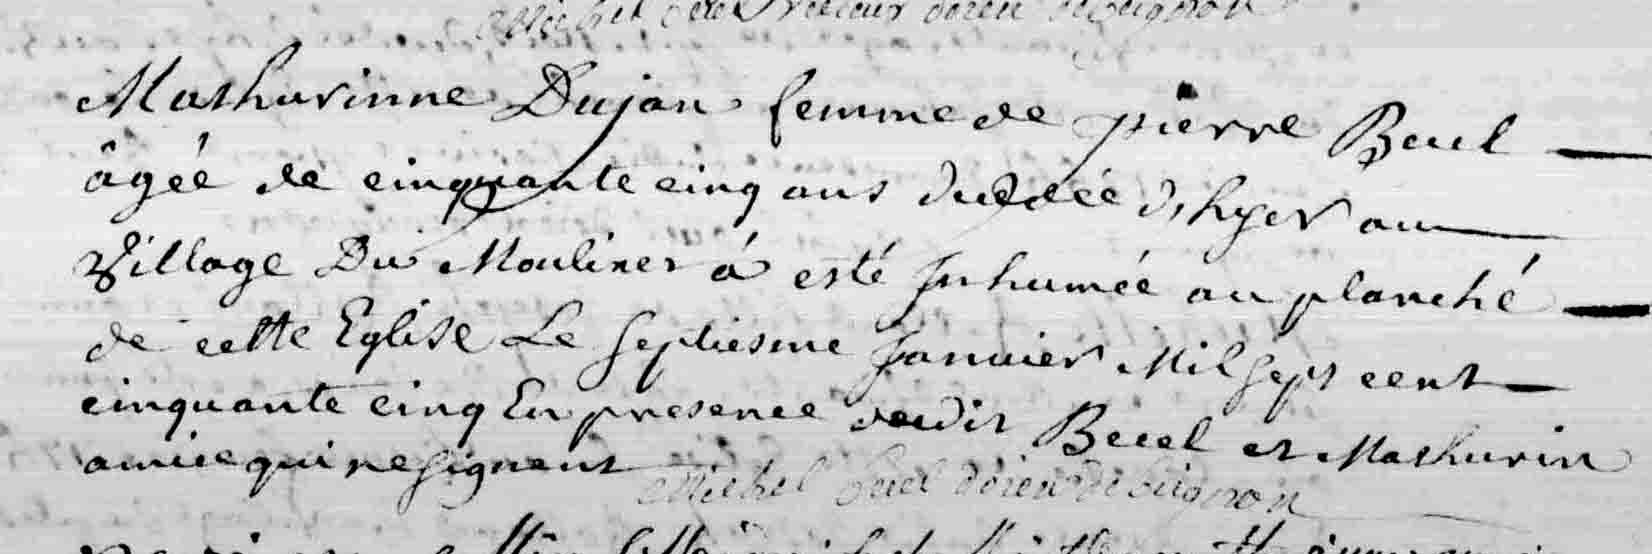 Mathurinne Dujan femme de pierre Becel
âgée de cinquante cinq ans dudedée d'hyer au
Village Du Moulinet á esté Inhumée au planché
de cette Eglise Le Septiesme Janvier Mil Sept cent
cinquante cinq En presence dudit Becel et Mathurin
amice qui ne Signent
Michel